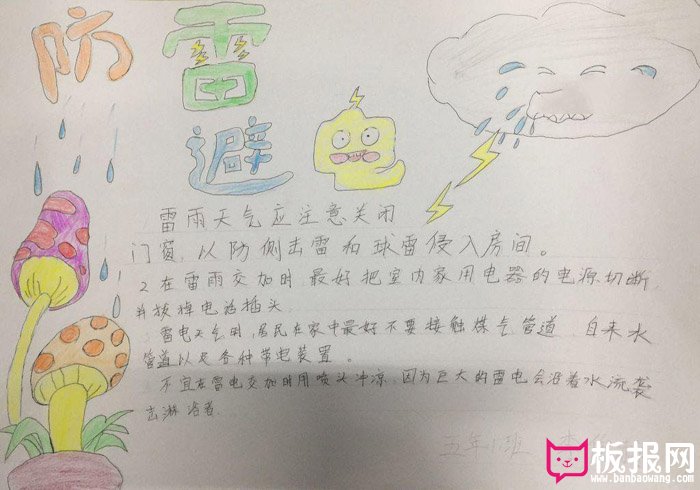 防雷
避电
雷雨天气应注意关闭
门窗,以防侧击雷和球雷侵入房间。
2在雷雨交加时,最好把室内家用电器的电源切断,
并拔掉电话插头
雷电天气时,居民在家中最好不要接触煤气管道、自来水
管道以及各种带电装置。
不宜在雷电交加时用喷头冲凉,因为巨大的雷电会沿着水流袭
击淋浴者.
五年1班
板报网
www.banbaowang.com